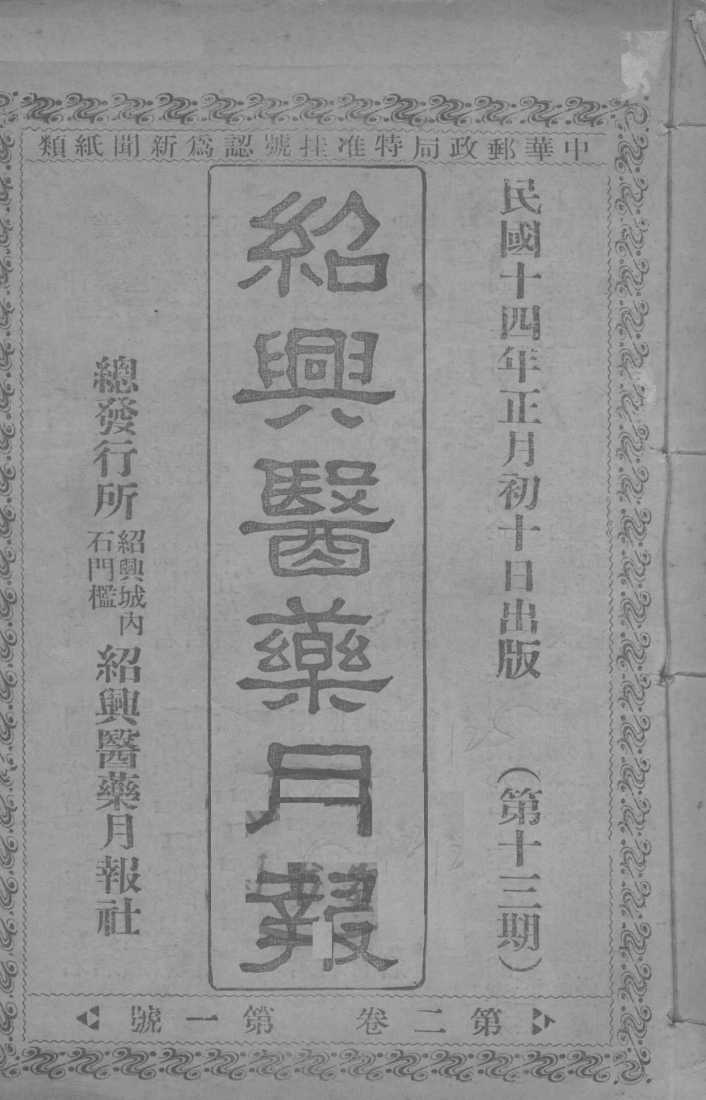 中華郵政局特准挂號認爲新聞紙類
民國十四年正月初十日出版 （第十三期）
紹興醫藥月報
總發行所 紹興城內石門檻 紹興醫藥月報社
第二卷 第一號